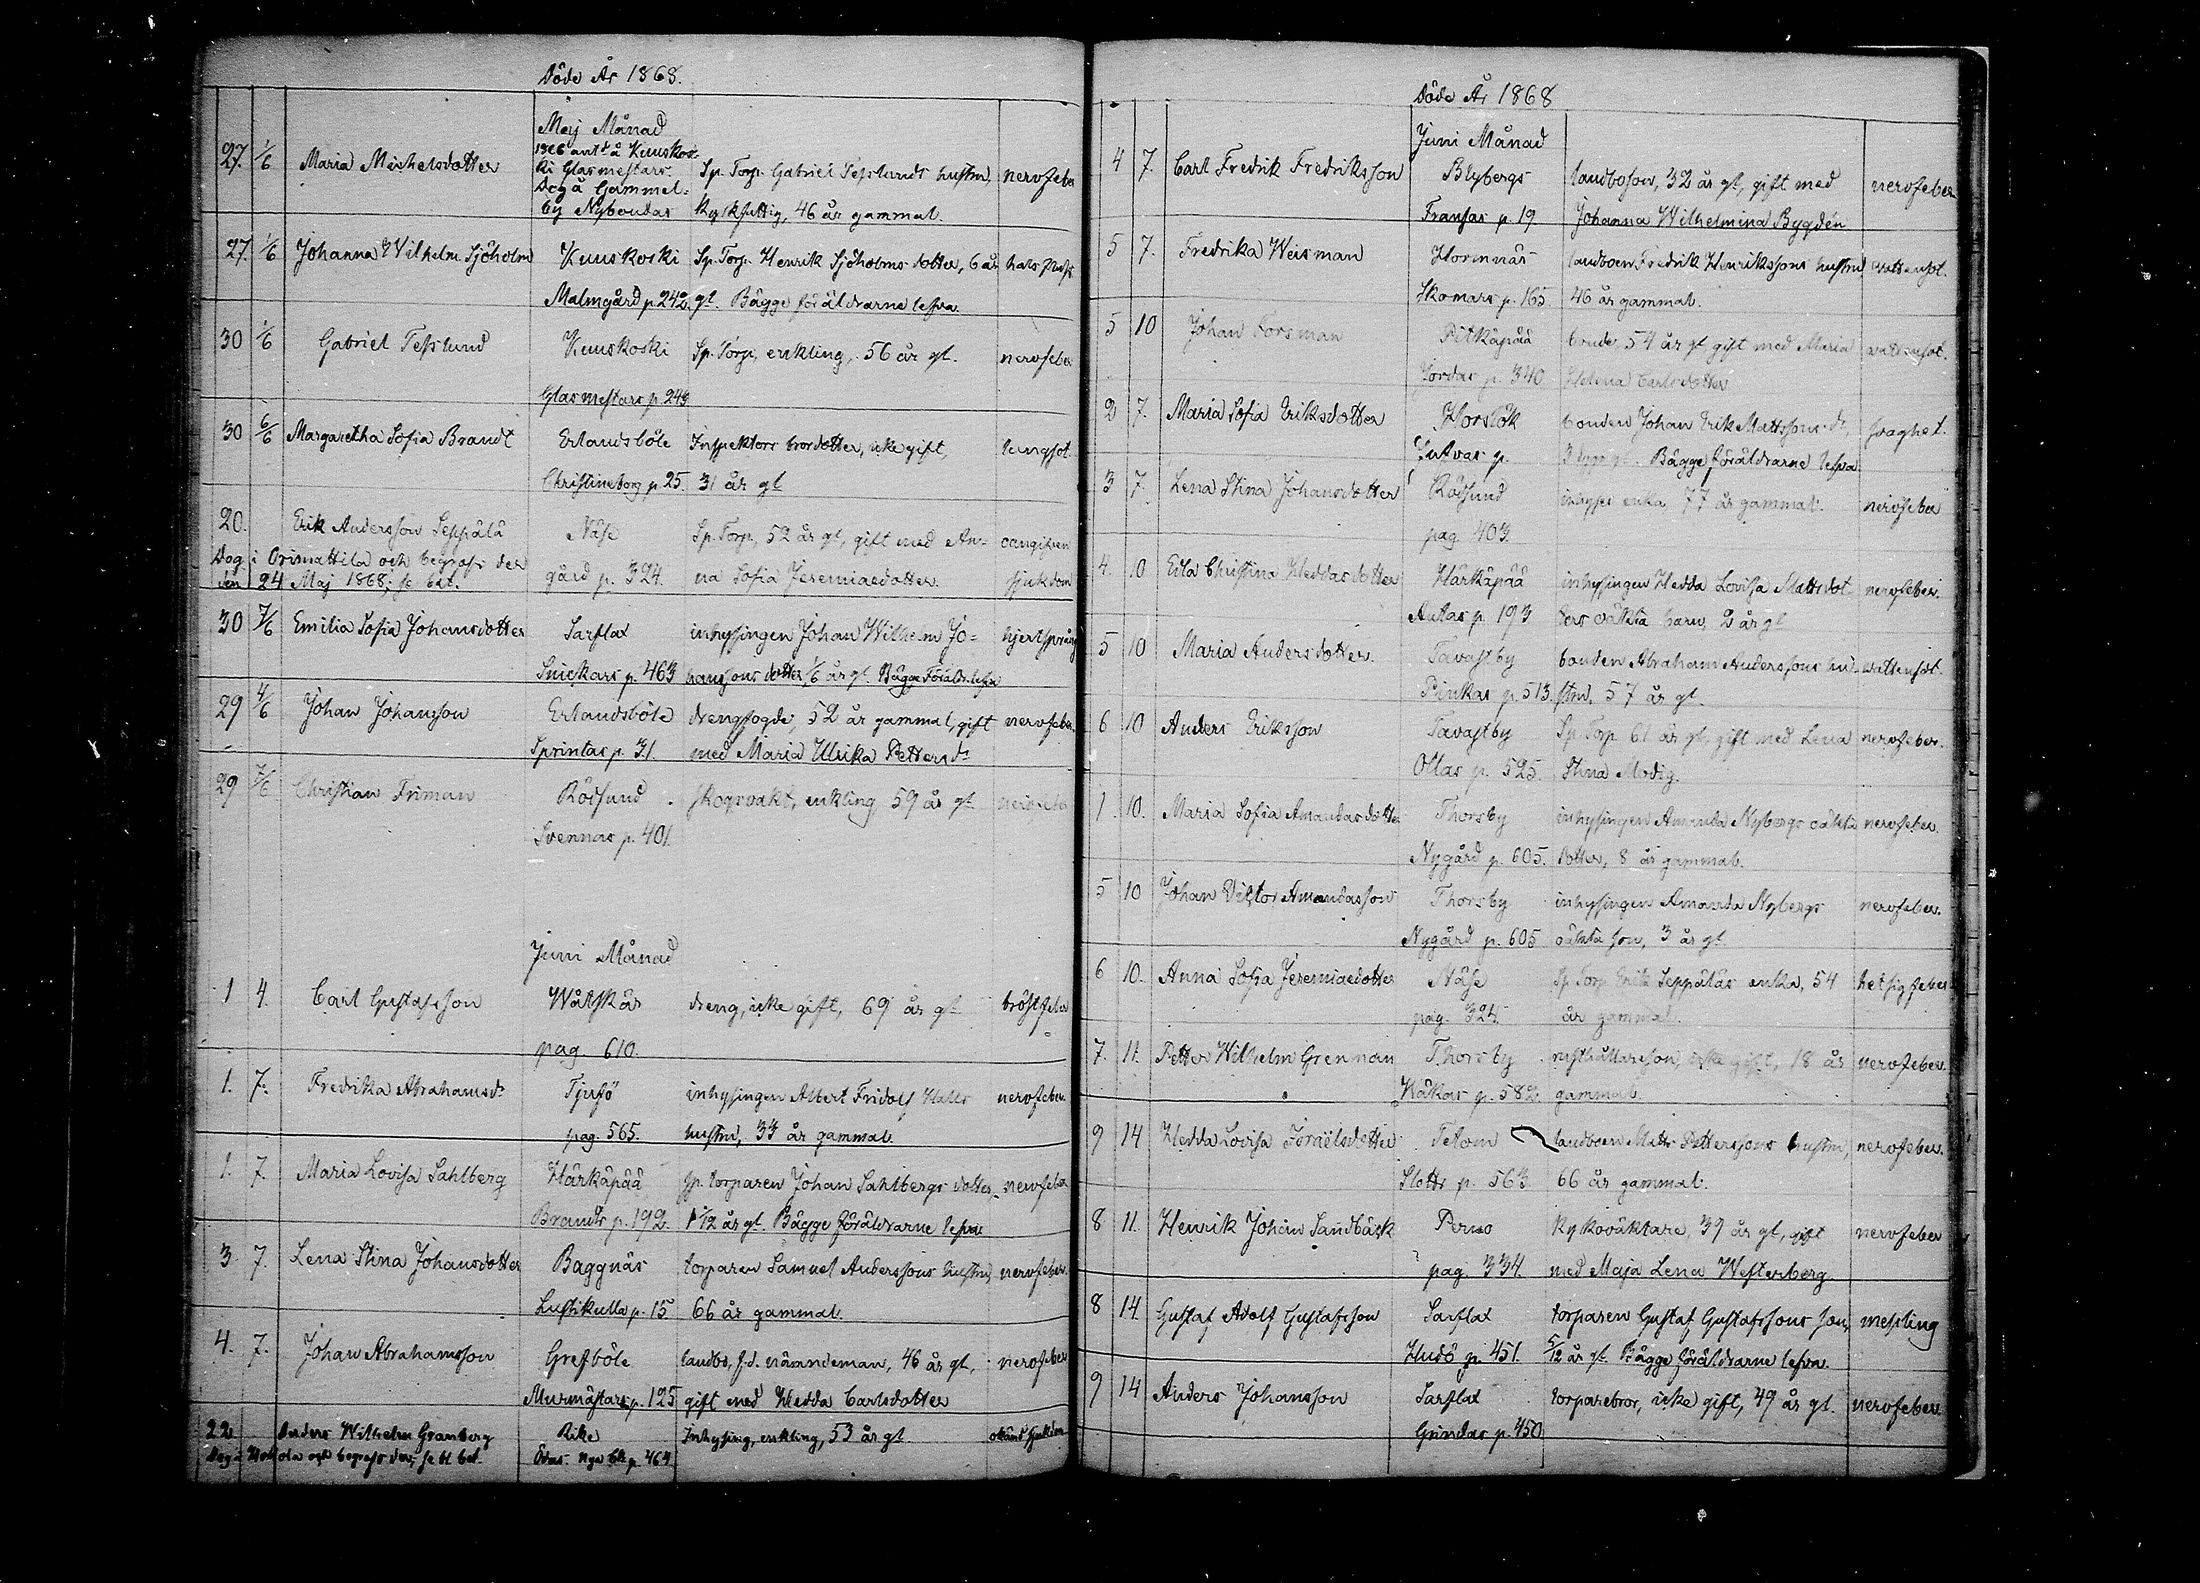 Döde År 1868.
Maj Månad
27. 1/6 Maria Michelsdotter 1866 antd å Kuuskos- Sp. Torp. Gabriel Tesslunds hustru, nervfeber
ki Glasmestars.
Dog å Gammel-
by Nybondas kyrkfattig, 46 år gammal.
27. 1/6 Johanna Wilhelm. Sjöholm Kuuskoski Sp. Torp. Henrik Sjöholms dotter, 6 år hals
Malmgård p. 242. gl. Bägge föräldrarne lefva
30 1/6 Gabriel Tesslund Kuuskoski Sp. Torp., enkling, 56 år gl. nervfeber
Glasmestars p. 243
30 6/6 Margaretha Sofia Brandt Erlandsböle Inspektors brordotter, icke gift, lungsot
Christineborg p. 25. 31 år gl
20. Erik Andersson Seppälä Näse Sp. Torp., 52 år gl, gift med An- oangifven
Dog i Orimattila och begrofs der gård p. 324. na Sofia Jeremiaedotter. sjukdom
den 24 Maj 1868; se bet.
30 7/6 Emilia Sofia Johansdotter Sarflax inhysingen Johan Wilhelm Jo- hjertsprång
Snickars p. 463 hanssons dotter, 1/6 år gl. Bägge Föräldr. lefva
29 4/6 Johan Johansson Erlandsböle drengfogde, 52 år gammal, gift nervfeber
Sprintas p. 31. med Maria Ulrika Pettersdr
29 7/6 Christian Friman Rödsund skogvakt, enkling 59 år gl.
Svennas p. 401.
Juni Månad
1 4. Carl Gustafsson Wåtskär dreng, icke gift, 69 år gl bröstfeber
pag 610.
1. 7. Fredrika Abrahamsdr Tjusö inhysingen Albert Fridolf Halls nervfeber
pag. 565. hustru, 33 år gammal
1. 7. Maria Lovisa Sahlberg Härkäpää sp. torparen Johan Sahlbergs dotter, nervfeber
Brands p. 192 1 1/12 år gl. Bägge föräldrarne lefva
3 7. Lena Stina Johansdotter Baggnäs torparen Samuel Anderssons hustru, nervfeber.
Lustikulla p. 15 66 år gammal.
4. 7. Johan Abrahamsson Grefböle landbo, f.d. nämndeman, 46 år gl, nervfeber
Murmästars p. 125 gift med Hedda Carlsdotter
22 Anders Wilhelm Granberg Rike Inhysing, enkling, 53 år gl okänd sjukdom
Dog i och begrofs der, se bl. bet. nya bk p. 464.
Döde År 1868
Juni Månad
4 7. Carl Fredrik Fredriksson Blybergs landboson, 32 år gl, gift med nervfeber
Fransas p. 19 Johanna Wilhelmina Bygdén
5 7. Fredrika Weisman Hornnäs landboen Fredrik Henrikssons hustru wattusot.
Skomars p. 165. 46 år gammal.
5 10 Johan Forsman Pitkäpää bonde, 54 år gl gift med Maria wattusot.
Jordas p. 340 Helena Carlsdotter
2 7. Maria Sofia Eriksdotter Horslök bonden Johan Erik Mattssons dr, svaghet.
p. Bägge föräldrarne lefva
3 7. Lena Stina Johansdotter Rödsund inhyses enka, 77 år gammal. nervfeber
pag 403.
4. 10 Eila Christina Heddasdotter Härkäpää inhysingen Hedda Lovisa Mattsdot- nervfeber.
Antas p. 193 ters oäkta barn, 2 år gl
5 10 Maria Andersdotter. Tavastby bonden Abraham Anderssons hu- wattusot.
Pinkas p. 513. stru, 57 år gl.
6 10 Anders Eriksson Tavastby Sp. Torp. 61 år gl, gift med Lena nervfeber.
Ollas p. 525. Stina Modig.
1. 10. Maria Sofia Amandasdotter Thorsby inhysingen Amanda Nybergs oäkta nervfeber.
Nygård p. 605. dotter, 8 år gammal.
5 10 Johan Viktor Amandasson Thorsby inhysingen Amanda Nybergs nervfeber.
Nygård p. 605 oäkta son, 3 år gl
6 10. Anna Sofia Jeremiaedotter Näse Sp. Torp. Erik Seppäläs enka, 54 hetsig feber
pag. 324. år gammal.
7. 11. Petter Wilhelm Grenman Thorsby rusthållareson, icke gift, 18 år nervfeber.
Kåkas p. 582 gammal.
9 14 Hedda Lovisa Israëlsdotter Tetom landboen Matts Petterssons hustru, nervfeber.
Slotts p. 563 66 år gammal.
8 11. Henrik Johan Sandbäck Perno kyrkoväktare, 39 år gl, gift nervfeber
pag. 334. med Maja Lena Westerberg.
8 14. Gustaf Adolf Gustafsson Sarflax torparen Gustaf Gustafssons son, messling
Hudö p. 451. 5/12 år gl. Bägge föräldrarne lefva.
9 14 Anders Johansson Sarflax torparebror, icke gift, 49 år gl. nervfeber
Grindas p. 450